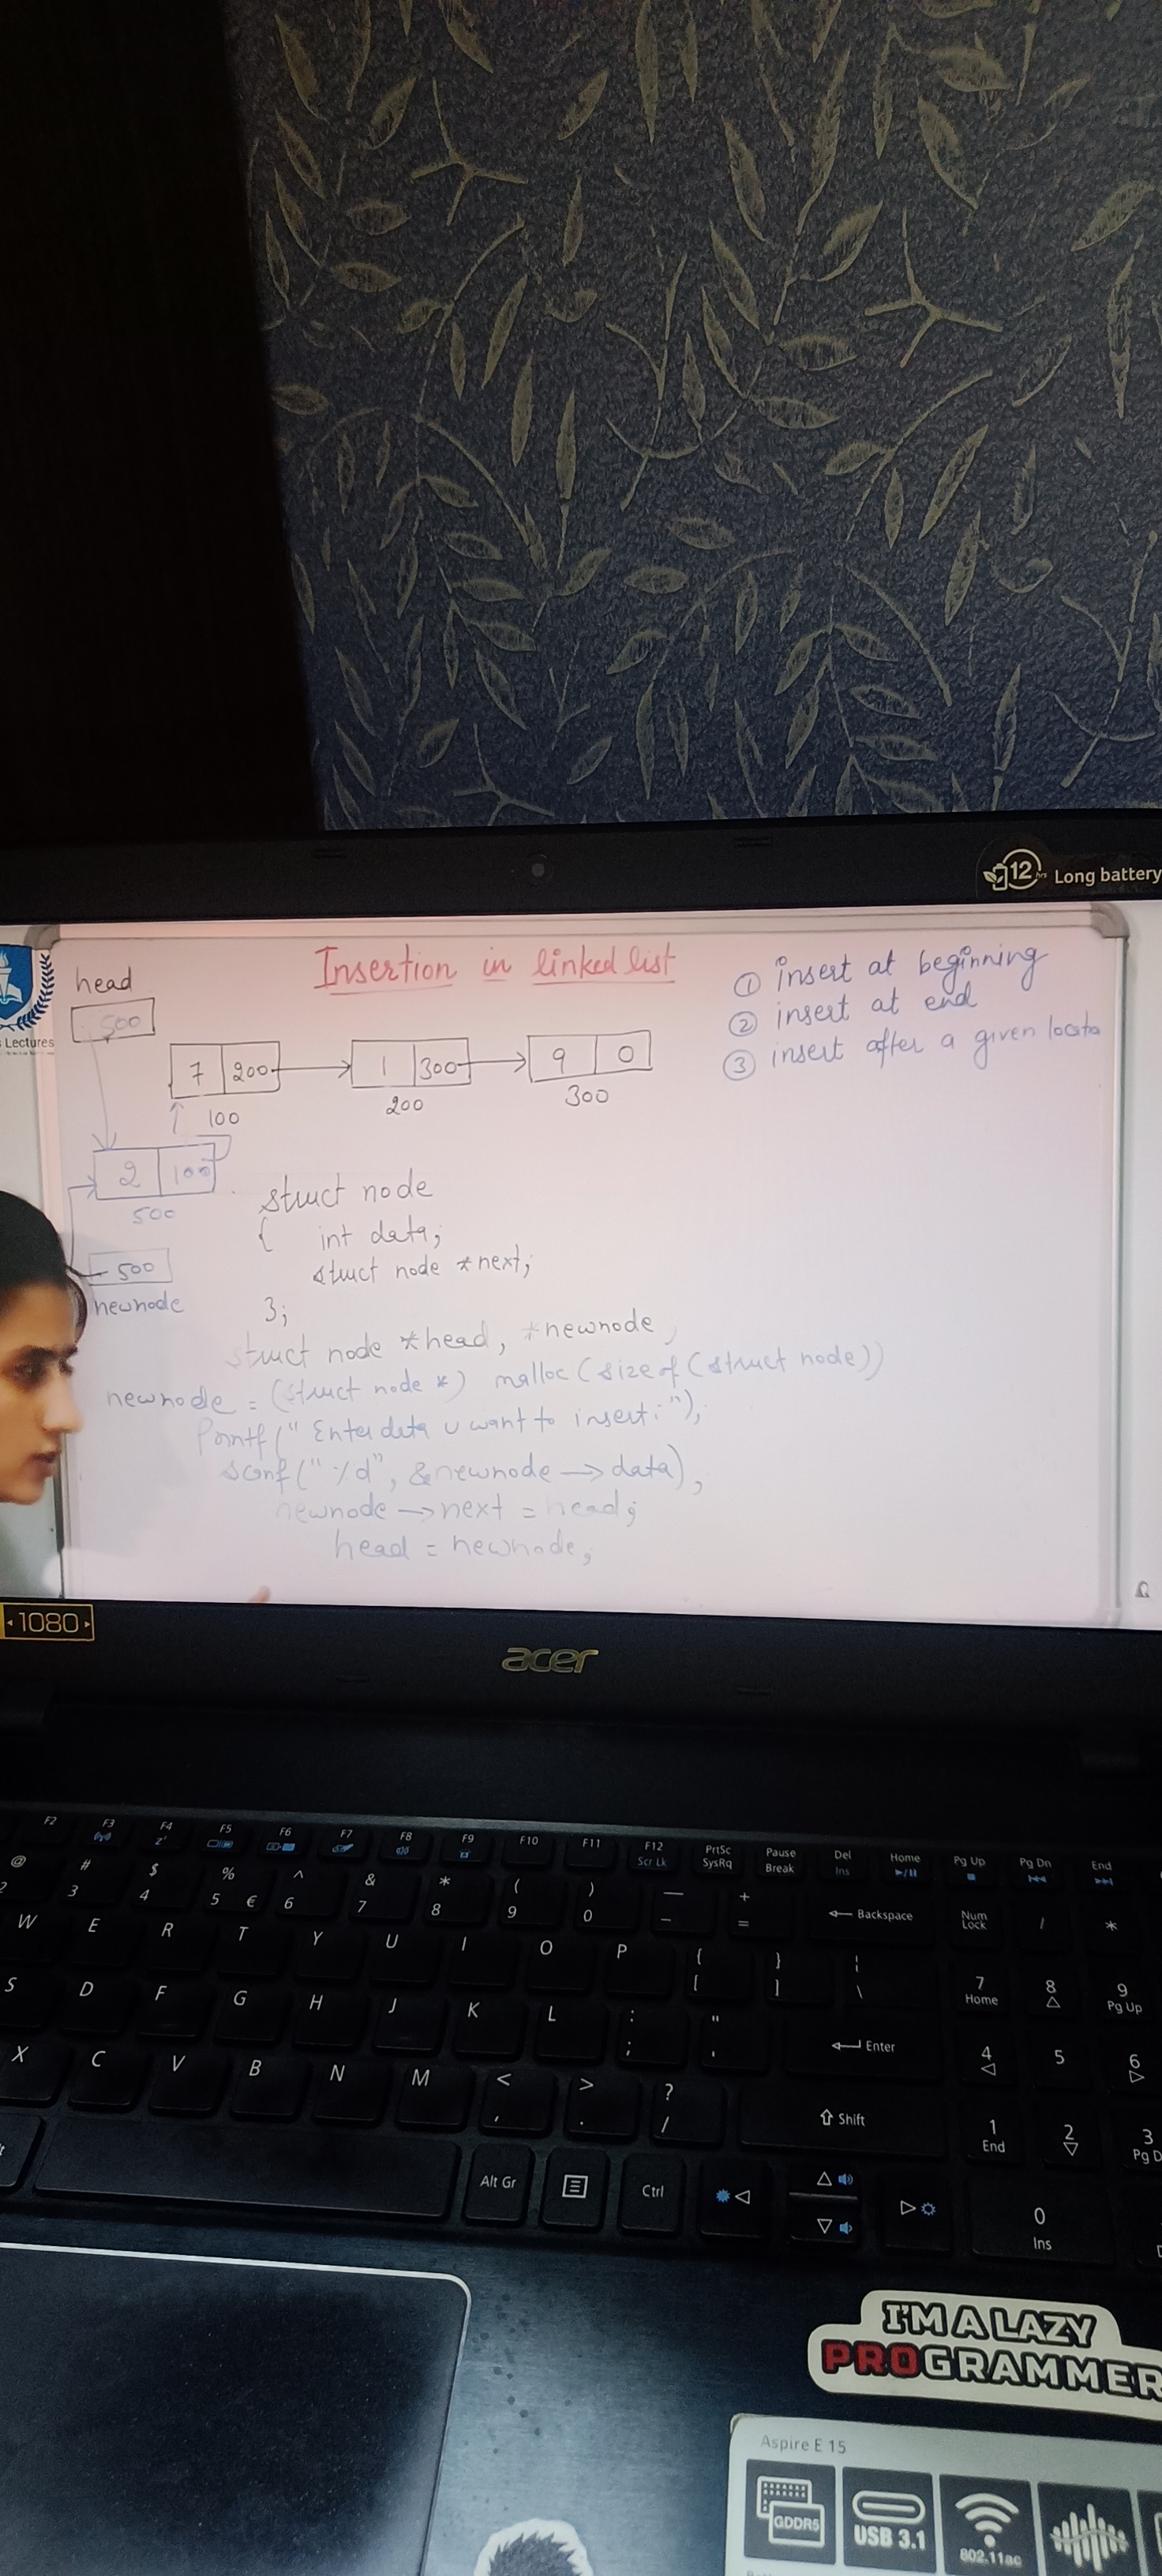 12 hrs Long battery
Insertion in linked list
head
500
Lectures
① insert at beginning
② insert at end
③ insert after a given locatio
7 200
1 300
9 0
100
200
300
2 100
500
500
newnode
struct node
{ int data;
struct node *next;
};
struct node *head, *newnode;
newnode = (struct node *) malloc (sizeof (struct node))
Printf (" Enter data u want to insert: ");
scanf (" %d", &newnode → data);
newnode → next = head;
head = newnode;
1080
acer
F2 F3 F4 F5 F6 F7 F8 F9 F10 F11 F12 PrtSc Pause Del Home Pg Up Pg Dn End
Scr Lk SysRq Break Ins
@ # $ % ^ & * ( ) — +
2 3 4 5 € 6 7 8 9 0 - = ← Backspace Num Lock / *
W E R T Y U I O P { [ } ] ¦ \ 7 Home 8 9 Pg Up
S D F G H J K L : ; " ' Enter 4 5 6
X C V B N M < , > . ? / Shift 1 End 2 3 Pg D
Alt Gr Ctrl 0 Ins
I'M A LAZY
PROGRAMMER
Aspire E 15
GDDR5 USB 3.1 802.11ac